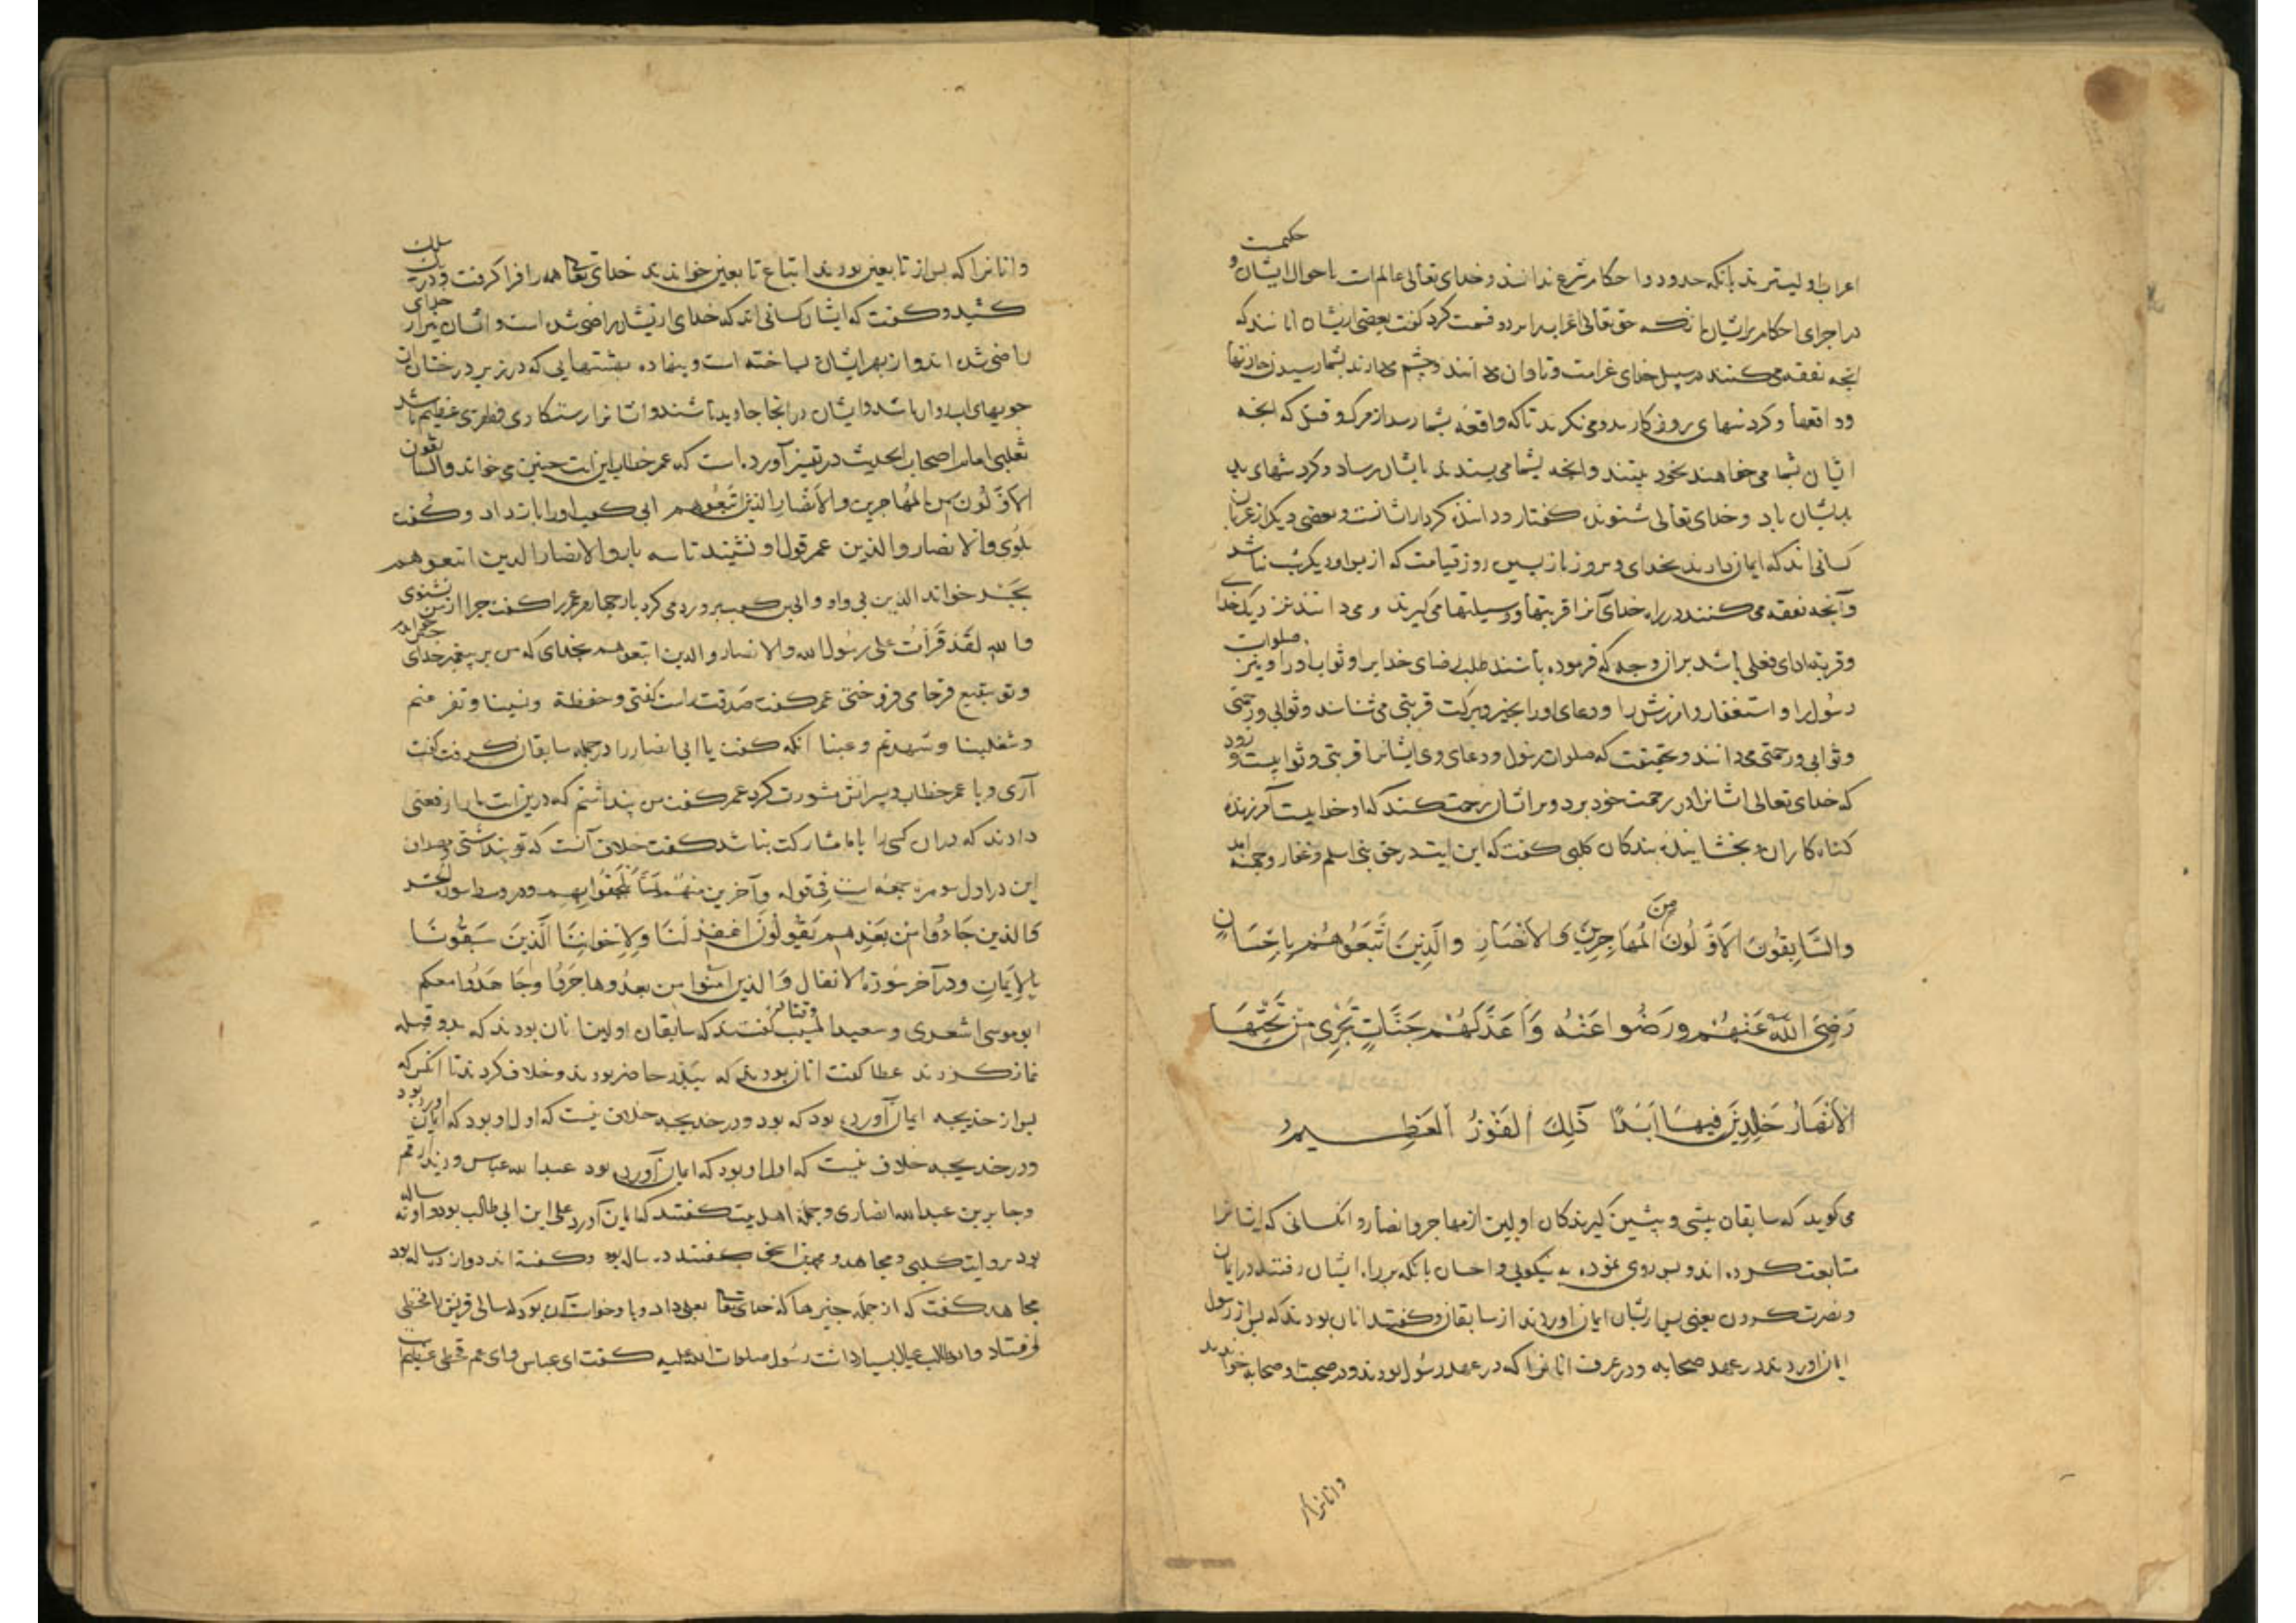 حکیمست
اعراب اولیترند بانکه حدود و احکام شرع ندانند و خدای تعالی عالمست باحوال ایشان و
در اجرای احکام بر ایشان آنکه حق تعالی اعراب را بر دو قسمت کرد گفت بعضی ازیشان آنانند که
آنچه نفقه می کنند در سبیل خدای غرامت و تاوان می دانند و چشم می دارند بشما رسیدن حادثها
و واقعها و کردشهای روزکار و می نکرند تا که واقعه بشما رسد از مرک و قتل که آنچه
ایشان بشما می خواهند بخود بینند و آنچه بشما می پسندند بایشان رساد و کردشهای بد
بدیشان باد و خدای تعالی شنونده کفتار و داننده کردار ایشانست و بعضی دیکر از عربان
کسانی اند که ایمان دارند بخدای و بروز بازپسین روز قیامت که از پس او دیکر شب نباشد
و آنچه نفقه می کنند در راه خدای آنرا قربتها و وسیلتها می کیرند و می دانند نزدیک خدای
و قربت ادای فعلی باشد بر آن وجه که فرموده باشند طلب رضای خدایرا و ثواب او را و نیز صلوات
رسول را و استغفار و آمرزش را و دعای او را بخیر و برکت قربتی می شناسند و ثوابی و رحمتی
و ثوابی و رحمتی می دانند و بحقیقت که صلوات رسول و دعای وی ایشانرا قربتی و ثوابیست و زود
که خدای تعالی ایشانرا در رحمت خود برد و بر ایشان رحمت کند که او خداییست آمرزنده
کناه کاران و بخشاینده بندکان کلبی کفت که این آیت در حق بنی اسلم و غفار و جهینه آمد
والسَّابِقُونَ الاَوَّلُونَ مِنَ المُهَاجِرِينَ وَالاَنْصَارِ والَّذِينَ اتَّبَعُوهُمْ بِاِحْسَانٍ
رَضِيَ اللّٰهُ عَنْهُمْ ورَضُوا عَنْهُ وَاَعَدَّ لَهُمْ جَنَّاتٍ تَجْرِي مِنْ تَحْتِهَا
الأَنْهَارُ خٰلِدِينَ فِيهَا اَبَدًا ذٰلِكَ الفَوْزُ العَظِيمُ
می کوید که سابقان پیشی و پیشین کیرندکان اولین از مهاجر و انصار و آنکسانی که ایشانرا
متابعت کرده اند و پس روی نموده به نیکویی و احسان بآنکه بر راه ایشان رفتند در ایمان
و نصرت کردن یعنی پس ازیشان ایمان آوردند از سابقان و کفتند آنان بودند که پس از رسول
ایمان آوردند در عهد صحابه و در عرف آنانرا که در عهد رسول بودند و در صحبت او صحابه خواندند
و آنانرا که
و آنانرا که پس از تابعین بودند اتباع تابعین خواندند خدای تعالی همه را فرا کرفت و در یک سلک
کشید و کفت که ایشان کسانی اند که خدای ازیشان راضی شده است و ایشان نیز از خدای
راضی شده اند و از بهر ایشان ساخته است و بنهاده بهشتهایی که در زیر درختان آن
جویهای آب روان باشد و ایشان در آنجا جاوید باشند و ایشانرا رستکاری و ظفری عظیم باشد
ثعلبی امام اصحاب الحدیث در تفسیر آورده است که عمر خطاب این آیت چنین می خواند والسابقون
الاَوَّلُونَ مِنَ المُهَاجِرِينَ والاَنْصَارِ الذينَ اتَّبَعُوهم ابی کعب او را بات داد و کفت
بکوی والانصار والذين عمر قول او نشنید تا سه بار والانصار الذين اتبعوهم
خواند الذين بی واو و ابی بن کعب برو رد می کرد بار چهارم عمر را کفت چرا از من نشنوی
والله لَقَدْ قَرَأتُ علی رسُول الله والانصار والذين اتبعوهم بخدای که من بر پیغمبر خدای خواندم
و تو ببقیع می فروختی عمر کفت صَدَقت راست کفتی و حفظة ونسينا وتفرغتم
وشغلنا وشهدتم وغبنا آنکه کفت یا ابی انصار را در جمله سابقان کرفت کفت
آری و با عمر خطاب و پسرانش مشورت نکرد عمر کفت من پنداشتم که درین آیت ما را رفعتی
دادند که در آن کسی را با ما مشارکت نباشد کفت خلاف آنست که تو پنداشتی و مصداق
این در اول سوره جمعه است في قوله وآخرین مِنْهُمْ لَمَّا يَلْحَقُوا بِهِم و در وسط سورة الحشر
وَالذين جَاءُوا مِن بَعْدِهِم يَقُولُونَ اغْفِرْ لَنَا وَلِاِخْوَانِنَا الَّذِينَ سَبَقُونَا
بِالاِيمَانِ و در آخر سُورة الانفال وَالذين آمنوا من بعدُ وهاجَرُوا وجَاهَدُوا معكم
ابو موسی اشعری و سعید المسیب و قتاده کفتند که سابقان اولین آنان بودند که بدو قبله
نماز کردند عطا کفت آنان بودند که ببدر حاضر بودند و خلاف کردند تا آنکس که
پس از خدیجه ایمان آورده بود که بود و در خدیجه خلاف نیست که اول او بود که ایمان آورده بود
و در خدیجه خلاف نیست که اول او بود که ایمان آورده بود عبد الله عباس و زید ارقم
و جابر بن عبد الله انصاری و جمله اهل بیت کفتند که ایمان آورد علی ابن ابی طالب بود و او نه ساله
بود بروایت کلبی و مجاهد و محمد بن اسحق کفتند ده ساله بود و کفته اند دوازده ساله بود
مجاهد کفت که از جمله چیزها که خدای تعالی بعلی داد و با او خواست آن بود که سالی قریش را قحطی
افتاد و ابوطالب عیال بسیار داشت رسُول صلوات الله علیه کفت ای عباس و ای عم قحطی عظیم است